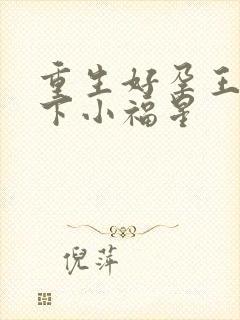 重生好孕王
下小福星
倪萍